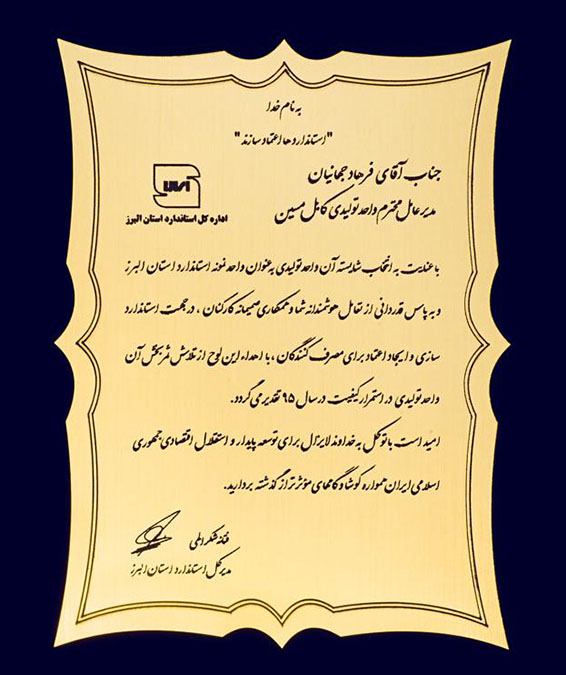 به نام خدا
"استانداردها اعتماد سازند"
جناب آقای فرهاد جهانیان
مدیر عامل محترم واحد تولیدی کابل مسین
اداره کل استاندارد استان البرز
با عنایت به انتخاب شایسته آن واحد تولیدی به عنوان واحد نمونه استاندارد استان البرز
و به پاس قدردانی از تعامل هوشمندانه شما و همکاری صمیمانه کارکنان ، در جهت استاندارد
سازی و ایجاد اعتماد برای مصرف کنندگان ، با اهداء این لوح از تلاش ثمربخش آن
واحد تولیدی در استمرار کیفیت در سال ۹۵ تقدیر می گردد.
امید است با توکل به خداوند لایزال برای توسعه پایدار و استقلال اقتصادی جمهوری
اسلامی ایران همواره کوشا و گامهای مؤثرتر از گذشته بردارید.
فتانه شکرالهی
مدیر کل استاندارد استان البرز